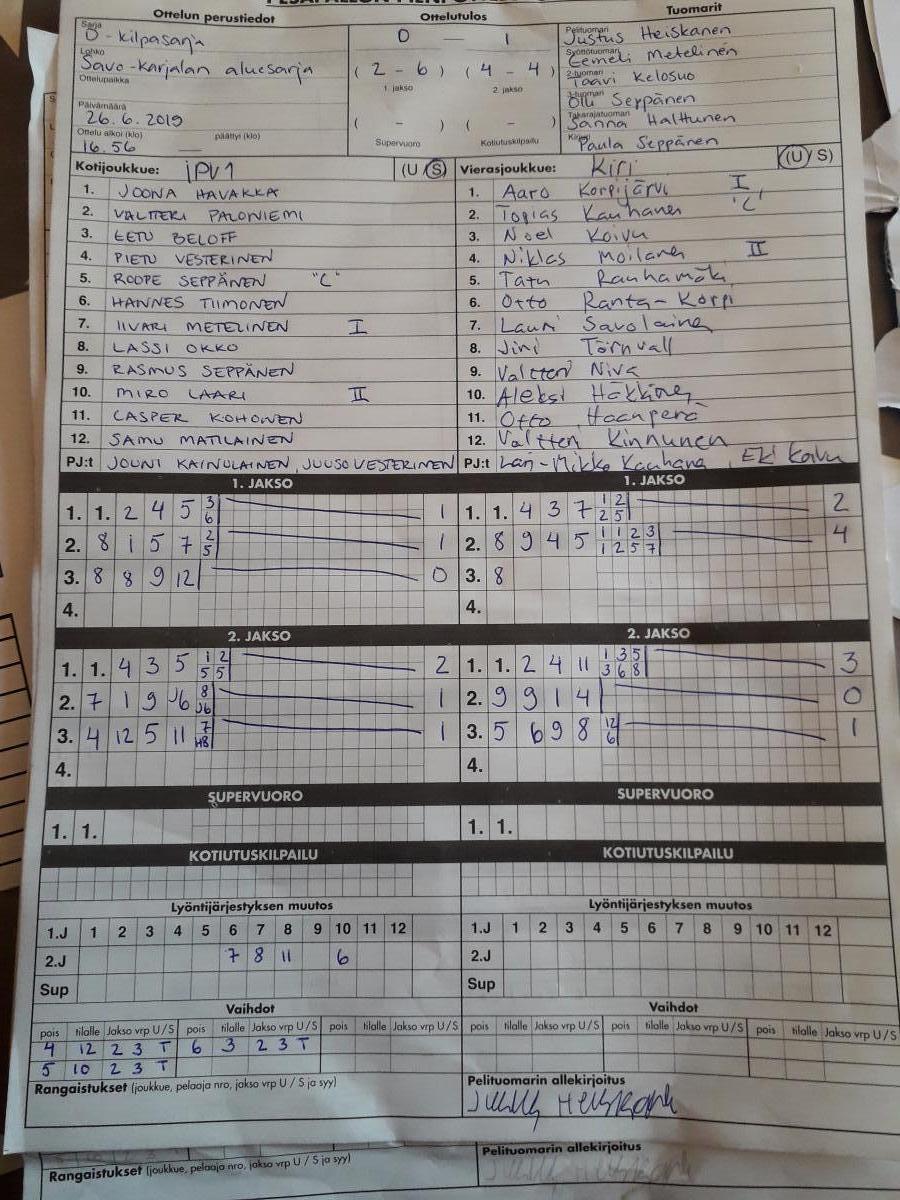 Ottelun perustiedot Ottelutulos Tuomarit
Sarja D-kilpasarja 0 — 1 Pelituomari Justus Heiskanen
Lohko Savo-Karjalan aluesarja (2 - 6) (4 - 4) Syöttötuomari Eemeli Metelinen
Ottelupaikka 1. jakso 2. jakso 2-tuomari Taavi Kelosuo
3-tuomari Olli Seppänen
Päivämäärä 26.6.2019 ( - ) ( - ) Takarajatuomari Sanna Halttunen
Ottelu alkoi (klo) 16.56 päättyi (klo) — Supervuoro Kotiutuskilpailu Kirjuri Paula Seppänen
Kotijoukkue: iPV1 (U/S) Vierasjoukkue: Kiri (U/S)
1. JOONA HAVAKKA 1. Aaro Korpijärvi I
2. VALTTERI PALONIEMI 2. Topias Kauhanen "C"
3. EETU BELOFF 3. Noel Koivu
4. PIETU VESTERINEN 4. Niklas Moilanen II
5. ROOPE SEPPÄNEN "C" 5. Tatu Rauhamäki
6. HANNES TIIMONEN 6. Otto Ranta-Korpi
7. IIVARI METELINEN I 7. Lauri Savolainen
8. LASSI OKKO 8. Jiri Törnvall
9. RASMUS SEPPÄNEN 9. Valtteri Niva
10. MIRO LAARI II 10. Aleksi Häkkinen
11. CASPER KOHONEN 11. Otto Haanperä
12. SAMU MATILAINEN 12. Valtteri Kinnunen
PJ:t JOUNI KAINULAINEN, JUUSO VESTERINEN PJ:t Lari-Mikko Kauhanen, Eki Koivu
1. JAKSO 1. JAKSO
1. 1. 2 4 5 3/6 1 1. 1. 4 3 7 1/2 2/5 2
2. 8 1 5 7 2/5 1 2. 8 9 4 5 1/1 1/2 2/5 3/7 4
3. 8 8 9 12 0 3. 8
4. 4.
2. JAKSO 2. JAKSO
1. 1. 4 3 5 1/5 2/5 2 1. 1. 2 4 11 1/3 3/6 5/8 3
2. 7 1 9 J6 8/J6 1 2. 9 9 1 4 0
3. 4 12 5 11 7/H8 1 3. 5 6 9 8 12/6 1
4. 4.
SUPERVUORO SUPERVUORO
1. 1. 1. 1.
KOTIUTUSKILPAILU KOTIUTUSKILPAILU
Lyöntijärjestyksen muutos Lyöntijärjestyksen muutos
1.J 1 2 3 4 5 6 7 8 9 10 11 12 1.J 1 2 3 4 5 6 7 8 9 10 11 12
2.J 7 8 11 6 2.J
Sup Sup
Vaihdot Vaihdot
pois tilalle Jakso vrp U/S pois tilalle Jakso vrp U/S pois tilalle Jakso vrp U/S pois tilalle Jakso vrp U/S pois tilalle Jakso vrp U/S pois tilalle Jakso vrp U/S
4 12 2 3 T 6 3 2 3 T
5 10 2 3 T
Rangaistukset (joukkue, pelaaja nro, jakso vrp U / S ja syy) Pelituomarin allekirjoitus
Rangaistukset (joukkue, pelaaja nro, jakso vrp U / S ja syy) Pelituomarin allekirjoitus